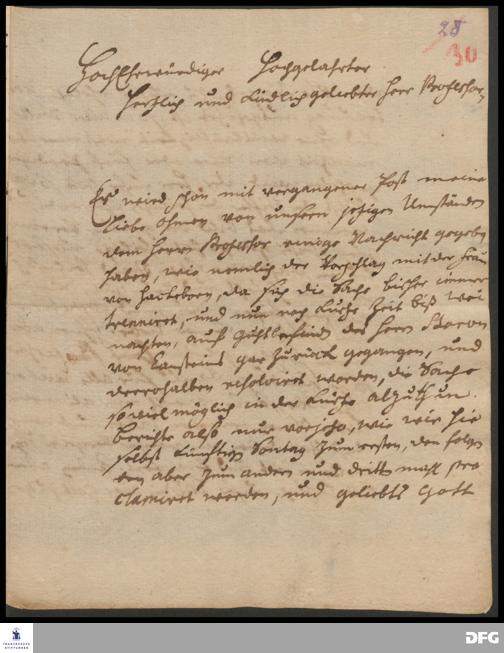 28
30
HochEhrwürdiger Hochgelahrter
Hertzlich und Kindlich geliebter Herr Professor,
Es wird schon mit vergangener Post meine
liebe von unsern jetzigen Umständen
dem Herrn Professor einige Nachricht gegeben
haben, wie nemlich der Vorschlag mit der Frau
von da sich die Sache bisher immer
trainiret, und nun nach Zeit biß Wei
nachten, auf des Herrn Baron
von Cansteins gar zurück gegangen, und
derohalben resolviret worden, die Sache
so viel möglich in der abzuthun.
berichte also nur wie wir hie
selbst künfftigen Sontag zum ersten, den folgen
den aber zum andern und dritten mahl pro
clamiret werden, und geliebts Gott
FRANCKESCHE STIFTUNGEN
DFG